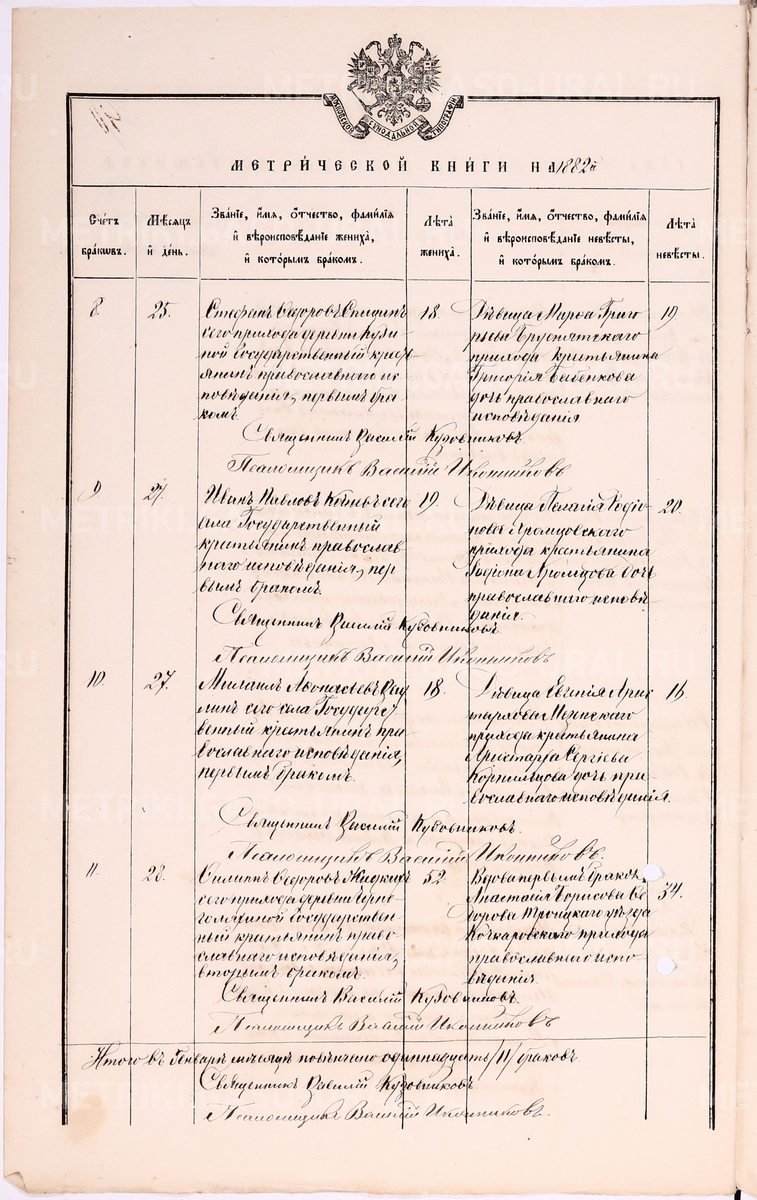 МОСКОВСКОЙ СѴНОДАЛЬНОЙ ТИПОГРАФІИ
МЕТРИ́ЧЕСКОЙ КНИ́ГИ НА 1882й
Сче́тъ бра́кѡвъ.
Мѣ́сѧцъ и҆ де́нь.
Зва́нїе, и҆́мѧ, ѻ҆́тчество, фами́лїѧ и҆ вѣроисповѣ́данїе жениха̀, и҆ кото́рымъ бра́комъ.
Лѣ́та жениха̀.
Зва́нїе, и҆́мѧ, ѻ҆́тчество, фами́лїѧ и҆ вѣроисповѣ́данїе невѣ́сты, и҆ кото́рымъ бра́комъ.
Лѣ́та невѣ́сты.
8.
25.
Стефанъ Ѳедоровъ
сего прихода деревни
ной Государственный кресть
янинъ православнаго ис
повѣданія, первымъ бра
комъ.
18.
Дѣвица Марѳа Григо
рьева Бруснятскаго
прихода крестьянина
Григорія
дочь православнаго
исповѣданія
19
Священникъ Василій Кузовниковъ
Псаломщикъ Василій Иконниковъ
9
27.
Иванъ Павловъ сего
села Государственный
крестьянинъ православ
наго исповѣданія, пер
вымъ бракомъ.
19.
Дѣвица Пелагія Родіо
нова
прихода крестьянина
Родіона дочь
православнаго исповѣ
данія.
20.
Священникъ Василій Кузовниковъ
Псаломщикъ Василій Иконниковъ
10.
27.
Михаилъ Аѳонасьевъ
сего села Государст
венный крестьянинъ пра
вославнаго исповѣданія,
первымъ бракомъ.
18.
Дѣвица Евгенія Арис
тархова
прихода крестьянина
Аристарха Сергіева
Корнильцова дочь пра
вославнаго исповѣданія.
16
Священникъ Василій Кузовниковъ.
Псаломщикъ Василій Иконниковъ.
11.
28.
Филиппъ Ѳедоровъ Жидкихъ
сего прихода деревни
Государствен
ный крестьянинъ право
славнаго исповѣданія,
вторымъ бракомъ.
52.
Вдова первымъ бракомъ
Анастасія Борисова Ѳе
дорова Троицкаго уѣзда
Кочкарскаго прихода
православнаго испо
вѣданія.
34.
Священникъ Василій Кузовниковъ.
Псаломщикъ Василій Иконниковъ
Итого въ Генварѣ мѣсяцѣ повѣнчано одиннадцать /11/ браковъ
Священникъ Василій Кузовниковъ
Псаломщикъ Василій Иконниковъ.